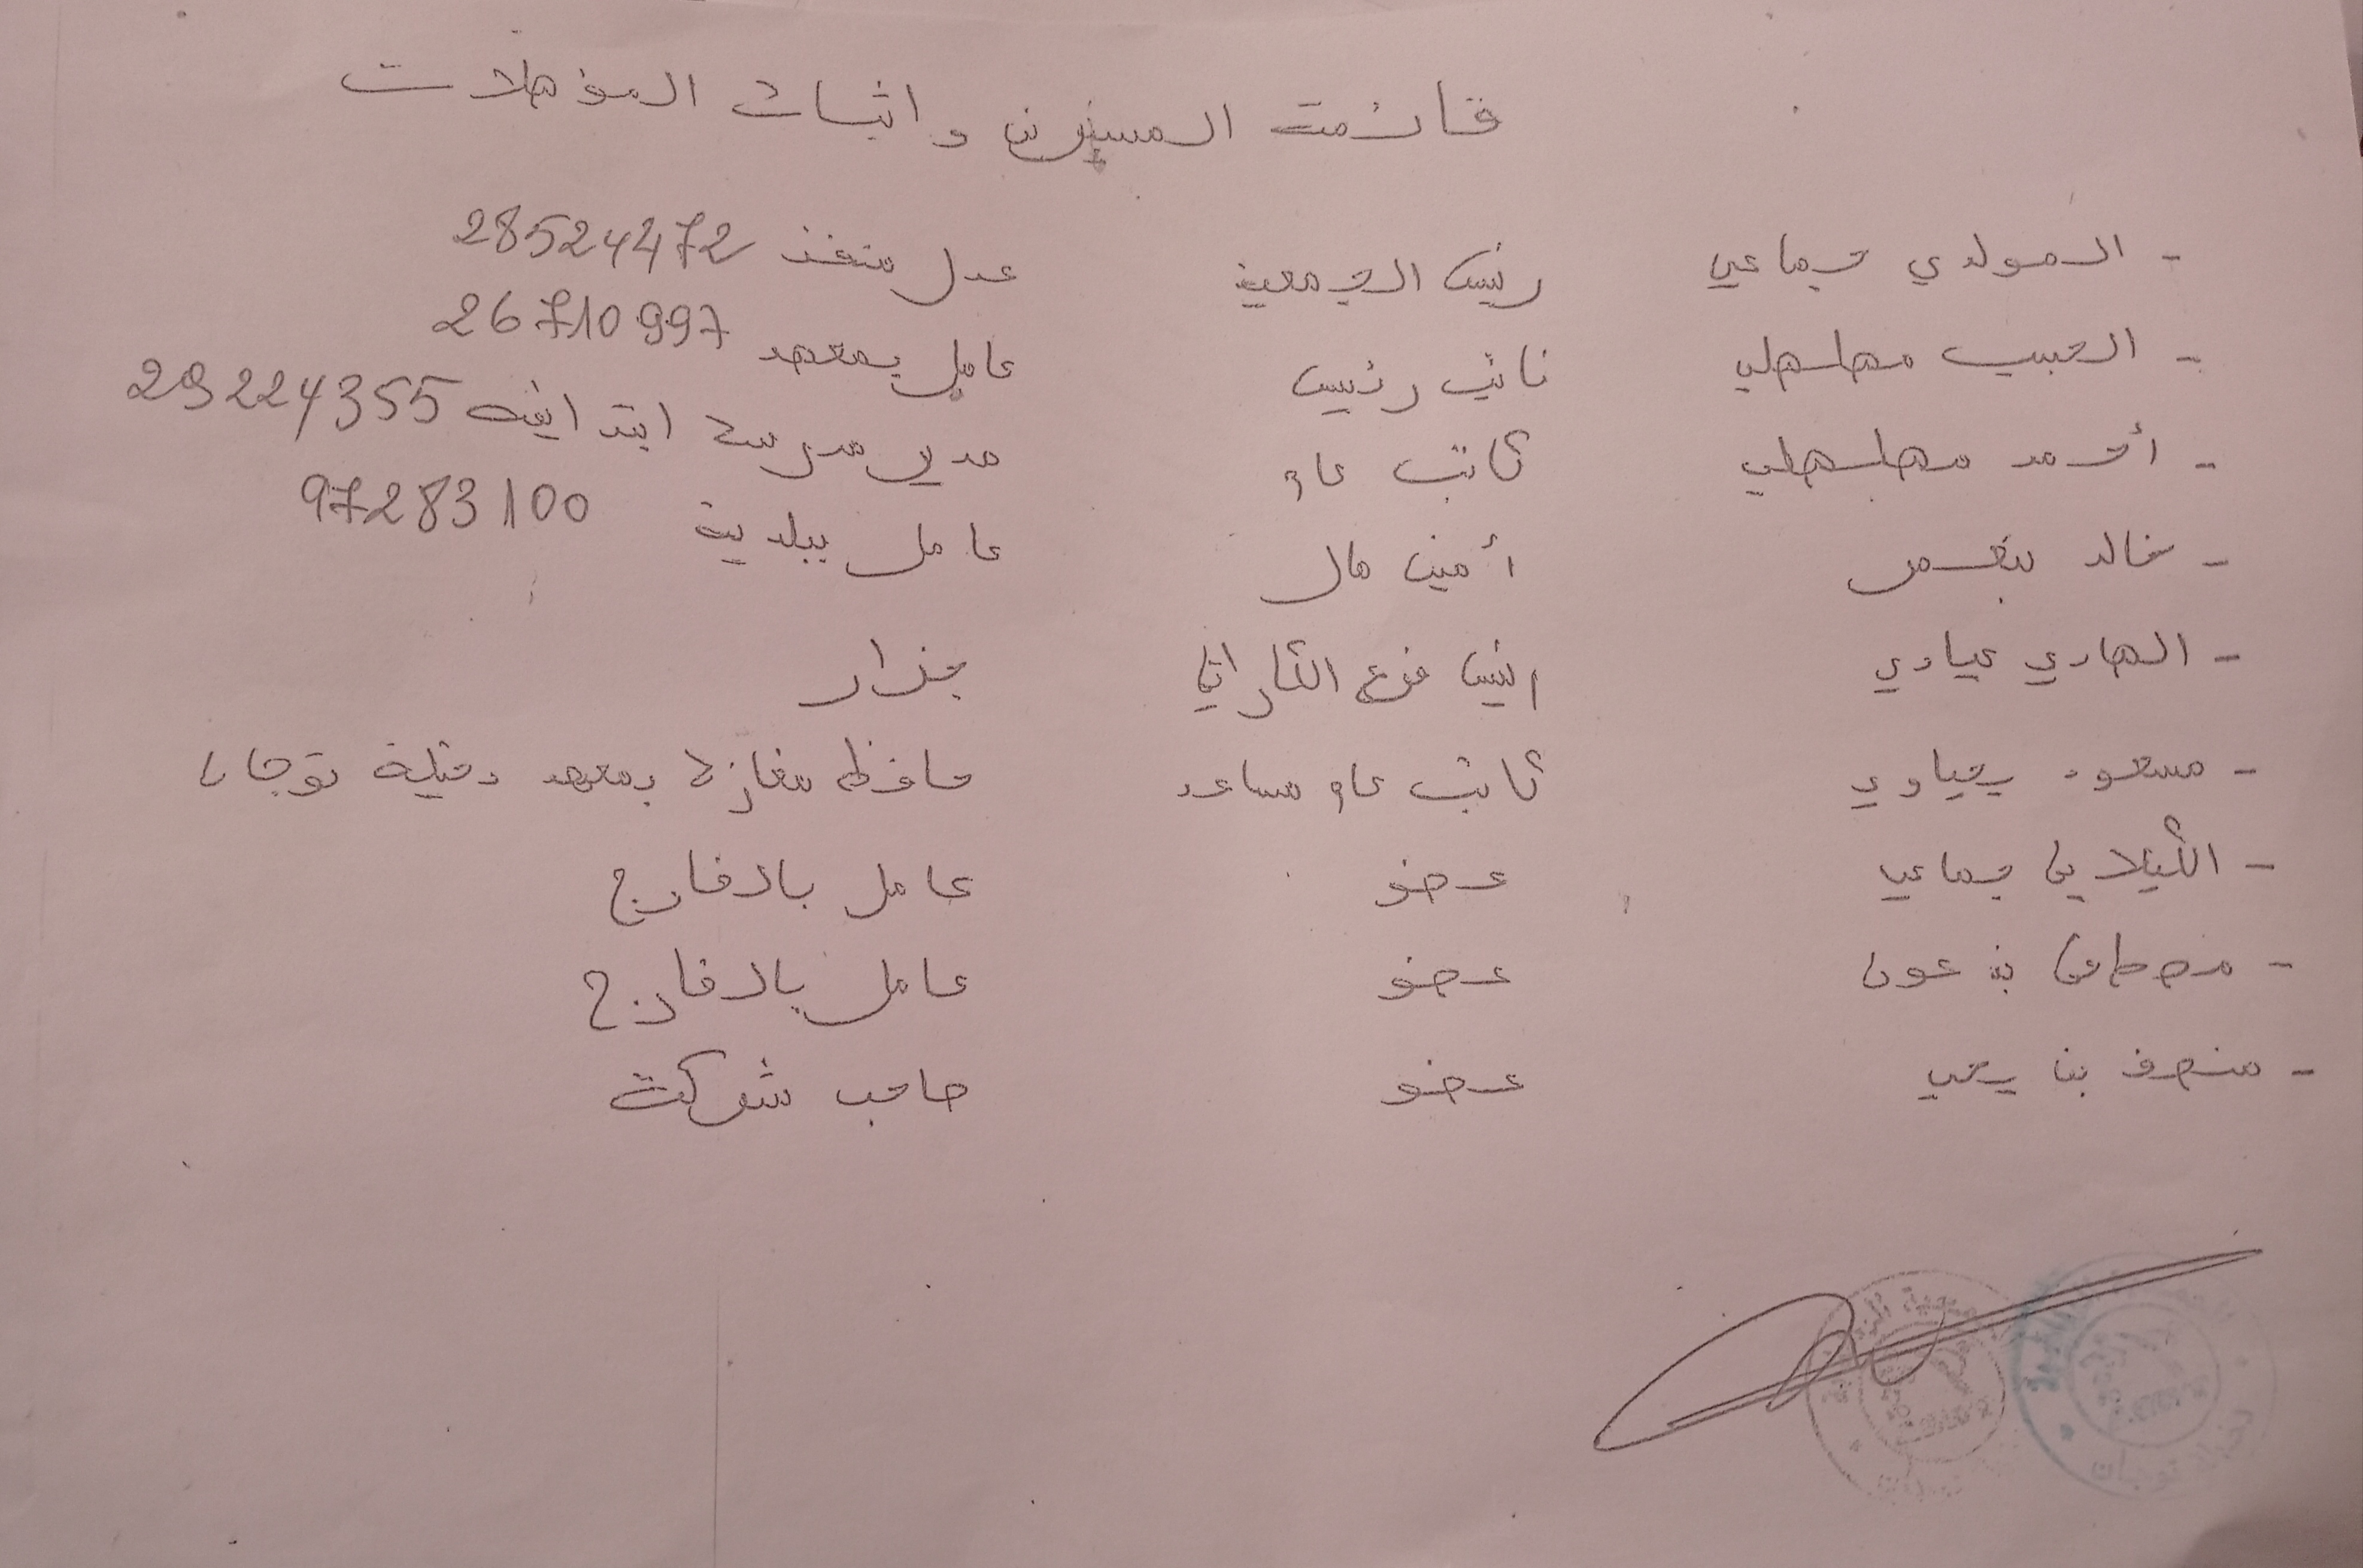 قائمة المسيرين و اثبات المؤهلات
- المولدي جماعي رئيس الجمعية عدل منفذ 28524472
- الحبيب مهلهلي نائب رئيس عامل بمعهد 26710997
- أحمد مهلهلي كاتب عام مدير مدرسة ابتدائية 29224355
- خالد بنعمر أمين مال عامل ببلدية 97283100
- الهادي عيادي رئيس فرع الكاراتي جزار
- مسعود يحياوي كاتب عام مساعد حافظ مغازة بمعهد دخيلة توجان
- الكيلاني جماعي عضو عامل بالخارج
- مصطفى بن عون عضو عامل بالخارج
- منصف بن يحي عضو صاحب شركة
توجان